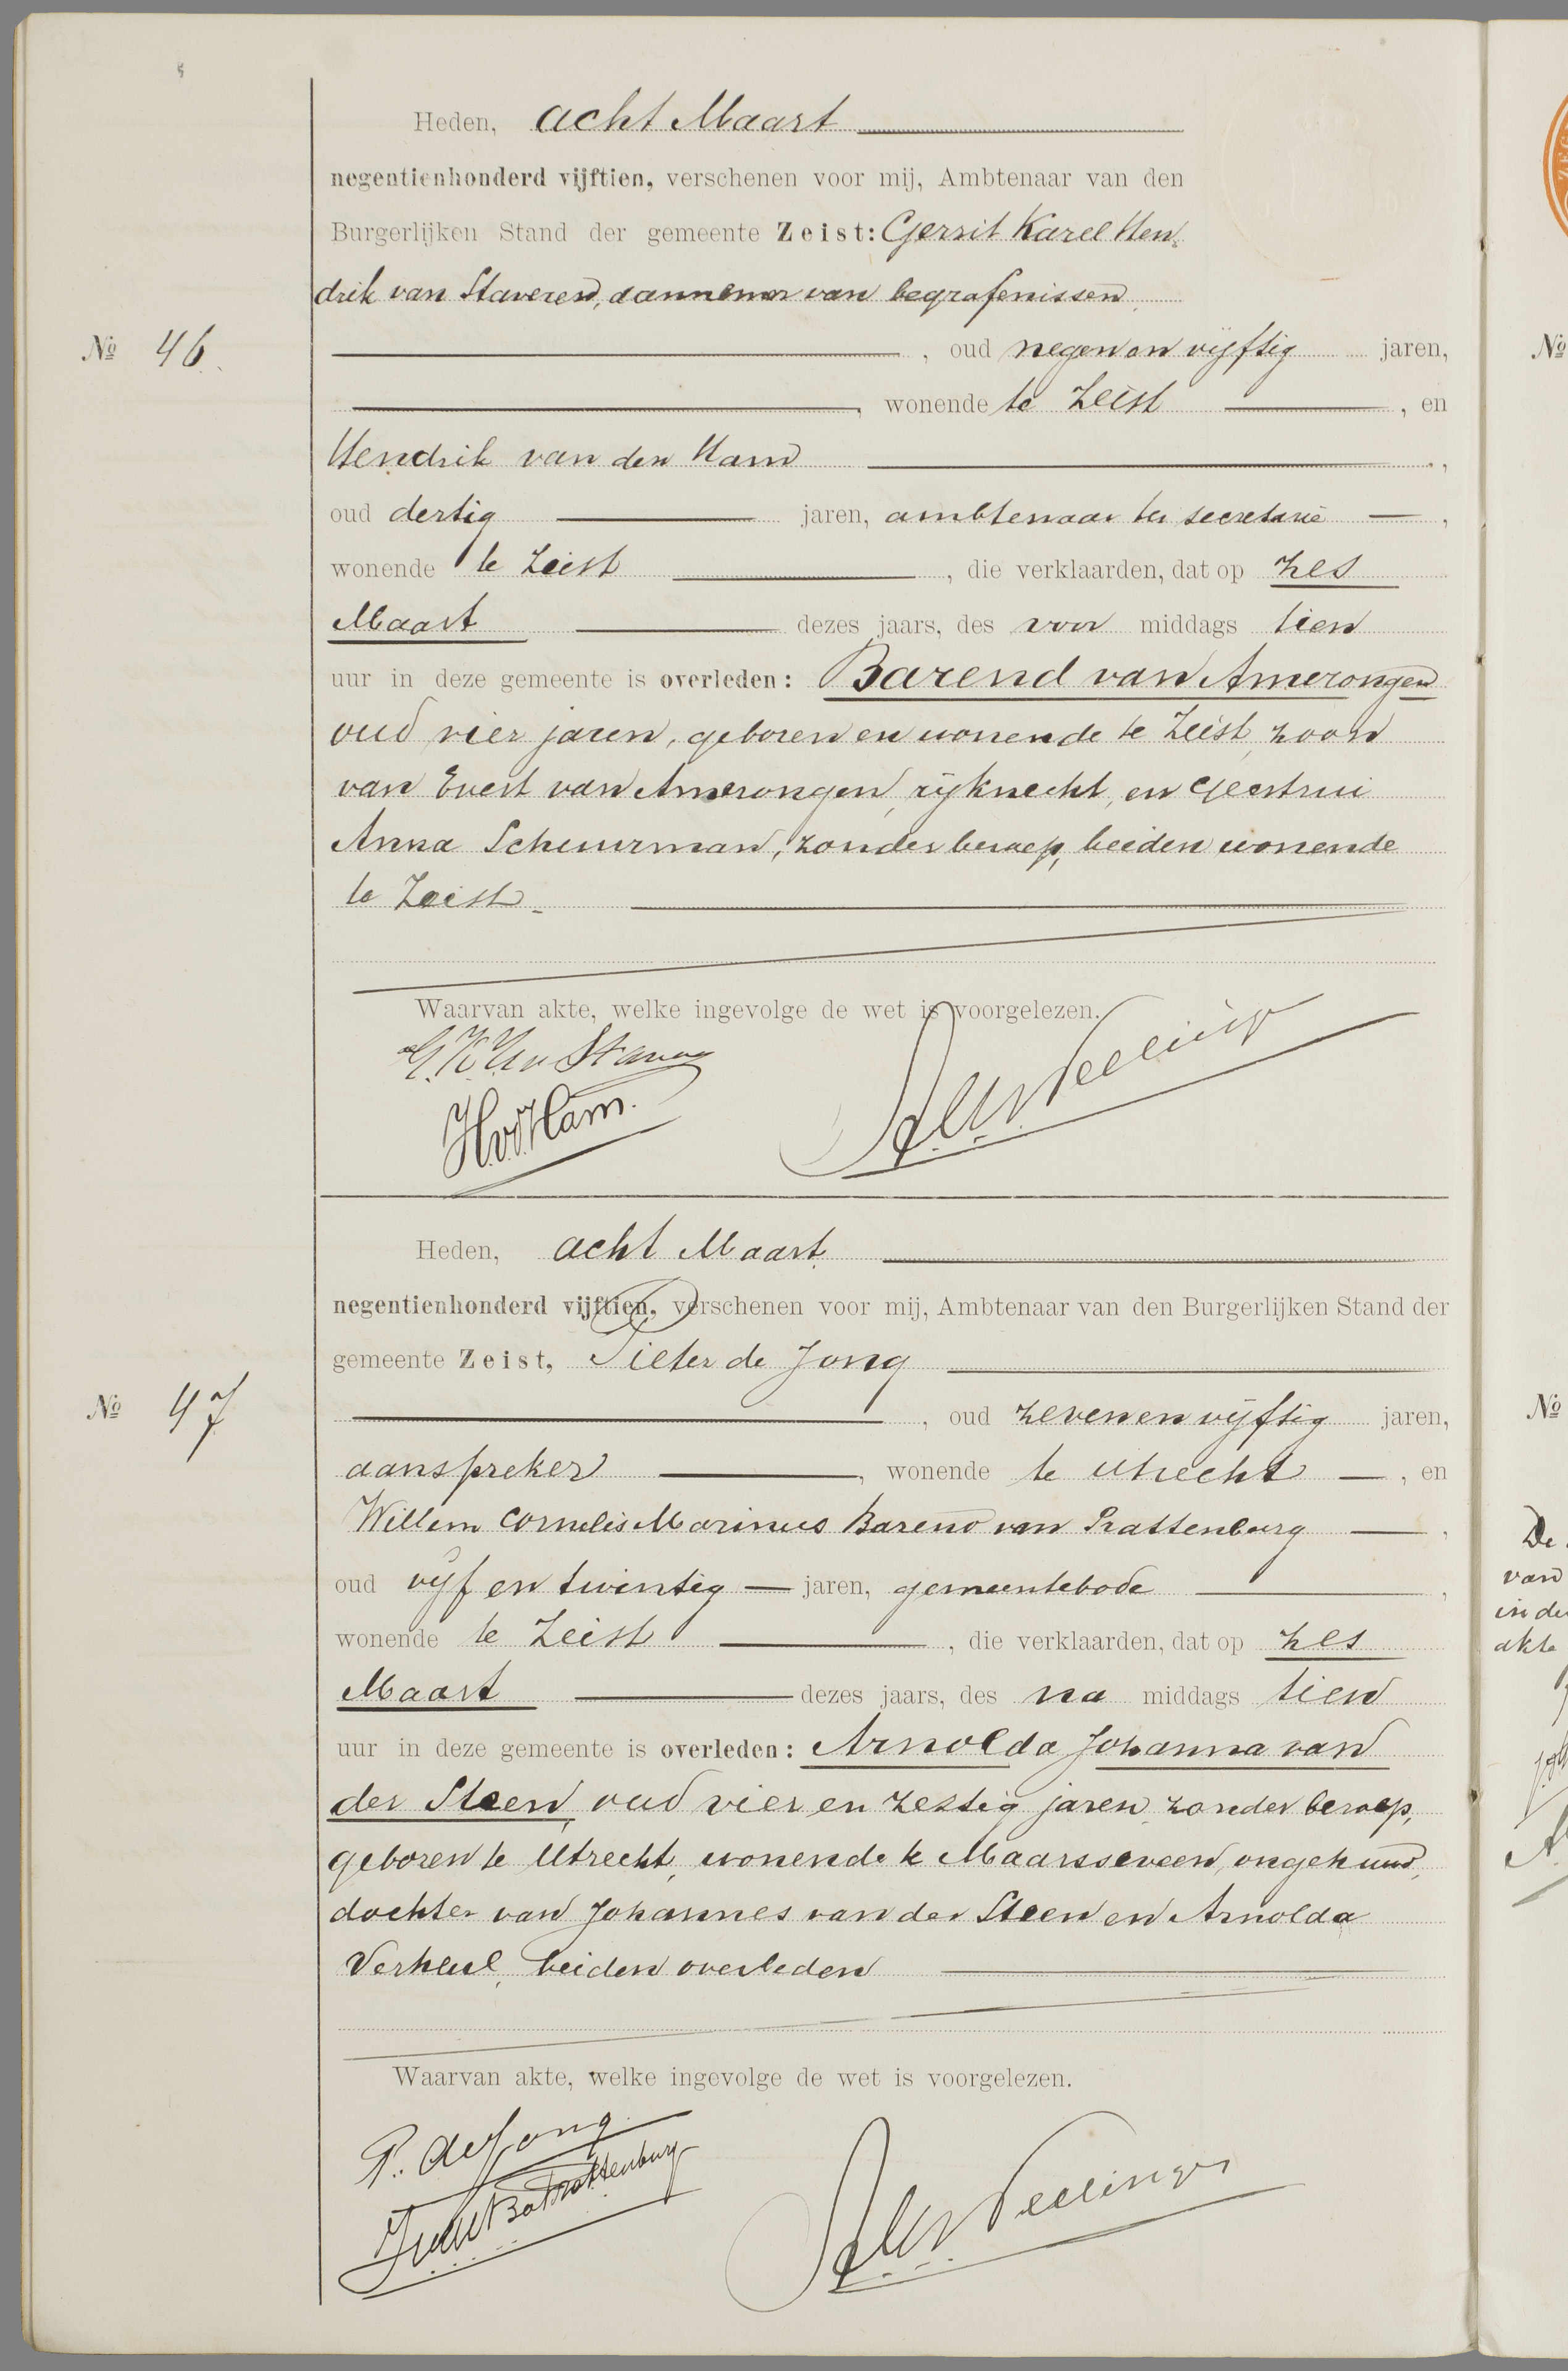 Heden, acht Maart
negentienhonderd vijftien, verschenen voor mij, Ambtenaar van den
Burgerlijken Stand der gemeente Zeist: Gerrit Karel Hen-
drik van Staveren, aannemer van begrafenissen
No 46.
, oud negen en vijftig jaren,
, wonende te Zeist , en
Hendrik van den Ham ,
oud dertig jaren, ambtenaar ter secretarie ,
wonende te Zeist , die verklaarden, dat op zes
Maart dezes jaars, des voor middags tien
uur in deze gemeente is overleden: Barend van Amerongen
oud vier jaren, geboren en wonende te Zeist, zoon
van Evert van Amerongen, rijknecht, en Geertrui
Anna Schuurman, zonder beroep, beiden wonende
te Zeist.
Waarvan akte, welke ingevolge de wet is voorgelezen.
H.v.d.Ham.
Heden, acht Maart
negentienhonderd vijftien, verschenen voor mij, Ambtenaar van den Burgerlijken Stand der
gemeente Zeist, Pieter de Jong
No 47
, oud zeven en vijftig jaren,
aanspreker , wonende te Utrecht , en
Willem Cornelis Marinus Barend van Rattenburg ,
oud vijf en twintig jaren, gemeentebode ,
wonende te Zeist , die verklaarden, dat op zes
Maart dezes jaars, des na middags tien
uur in deze gemeente is overleden: Arnolda Johanna van
der Steen, oud vier en zestig jaren, zonder beroep,
geboren te Utrecht, wonende te Maarsseveen, ongehuwd,
dochter van Johannes van der Steen en Arnolda
Verheul, beiden overleden
Waarvan akte, welke ingevolge de wet is voorgelezen.
P. de Jong
No
No
De
van
in de
akte